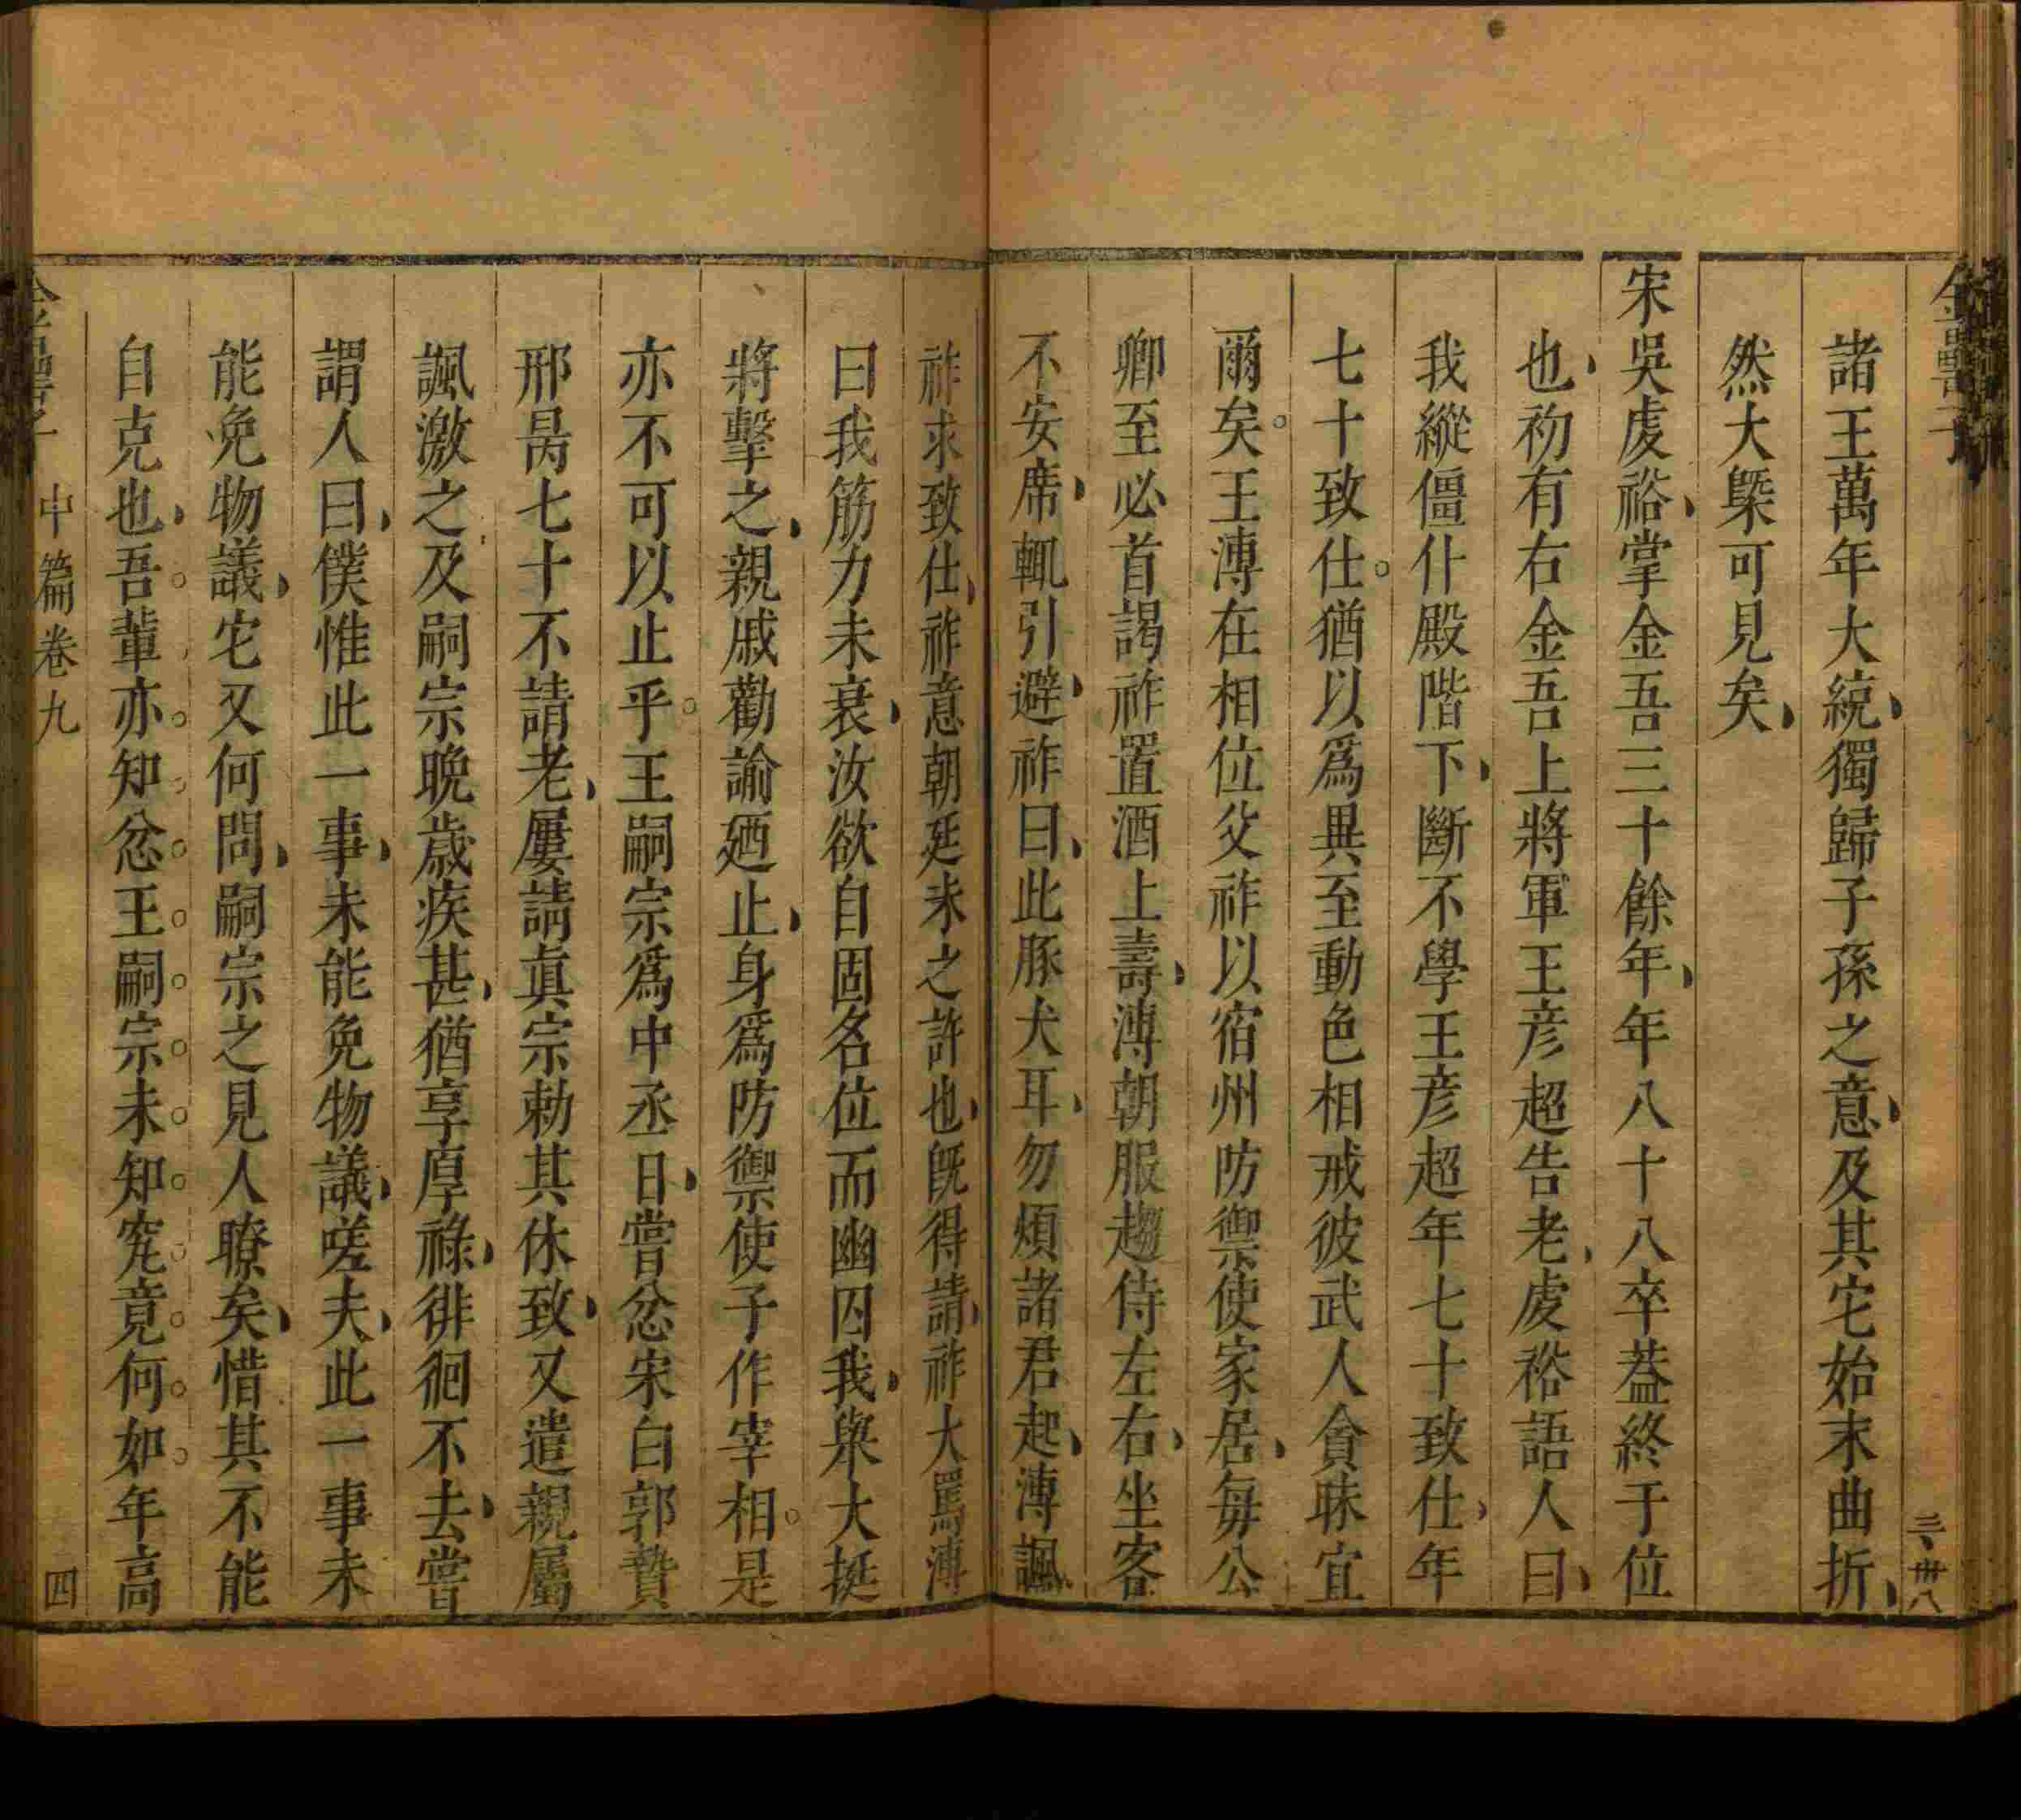 諸王萬年大統獨歸子孫之意及其宅始末曲折
然大槩可見矣
宋吳虔裕掌金吾三十餘年年八十八卒蓋終于位
也初有右金吾上將軍王彦超告老虔裕語人曰
我縱僵仆殿階下斷不學王彦超年七十致仕年
七十致仕猶以爲異至動色相戒彼武人貪昧宜
爾矣王溥在相位父祚以宿州防禦使家居每公
卿至必首謁祚置酒上壽溥朝服趨侍左右坐客
不安席輒引避祚曰此豚犬耳勿煩諸君起溥諷
祚求致仕祚意朝廷未之許也旣得請祚大罵溥
曰我筋力未衰汝欲自固名位而幽囚我與大挺
將擊之親戚勸諭廼止身爲防禦使子作宰相是
亦不可以止乎王嗣宗爲中丞日嘗忿宋白郭贄
邢昺七十不請老屢請眞宗勅其休致又遣親屬
諷激之及嗣宗晩歲疾甚猶享厚祿徘徊不去嘗
謂人曰僕惟此一事未能免物議嗟夫此一事未
能免物議宅又何問嗣宗之見人瞭矣惜其不能
自克也吾輩亦知忿王嗣宗未知究竟何如年高
中篇卷九
四